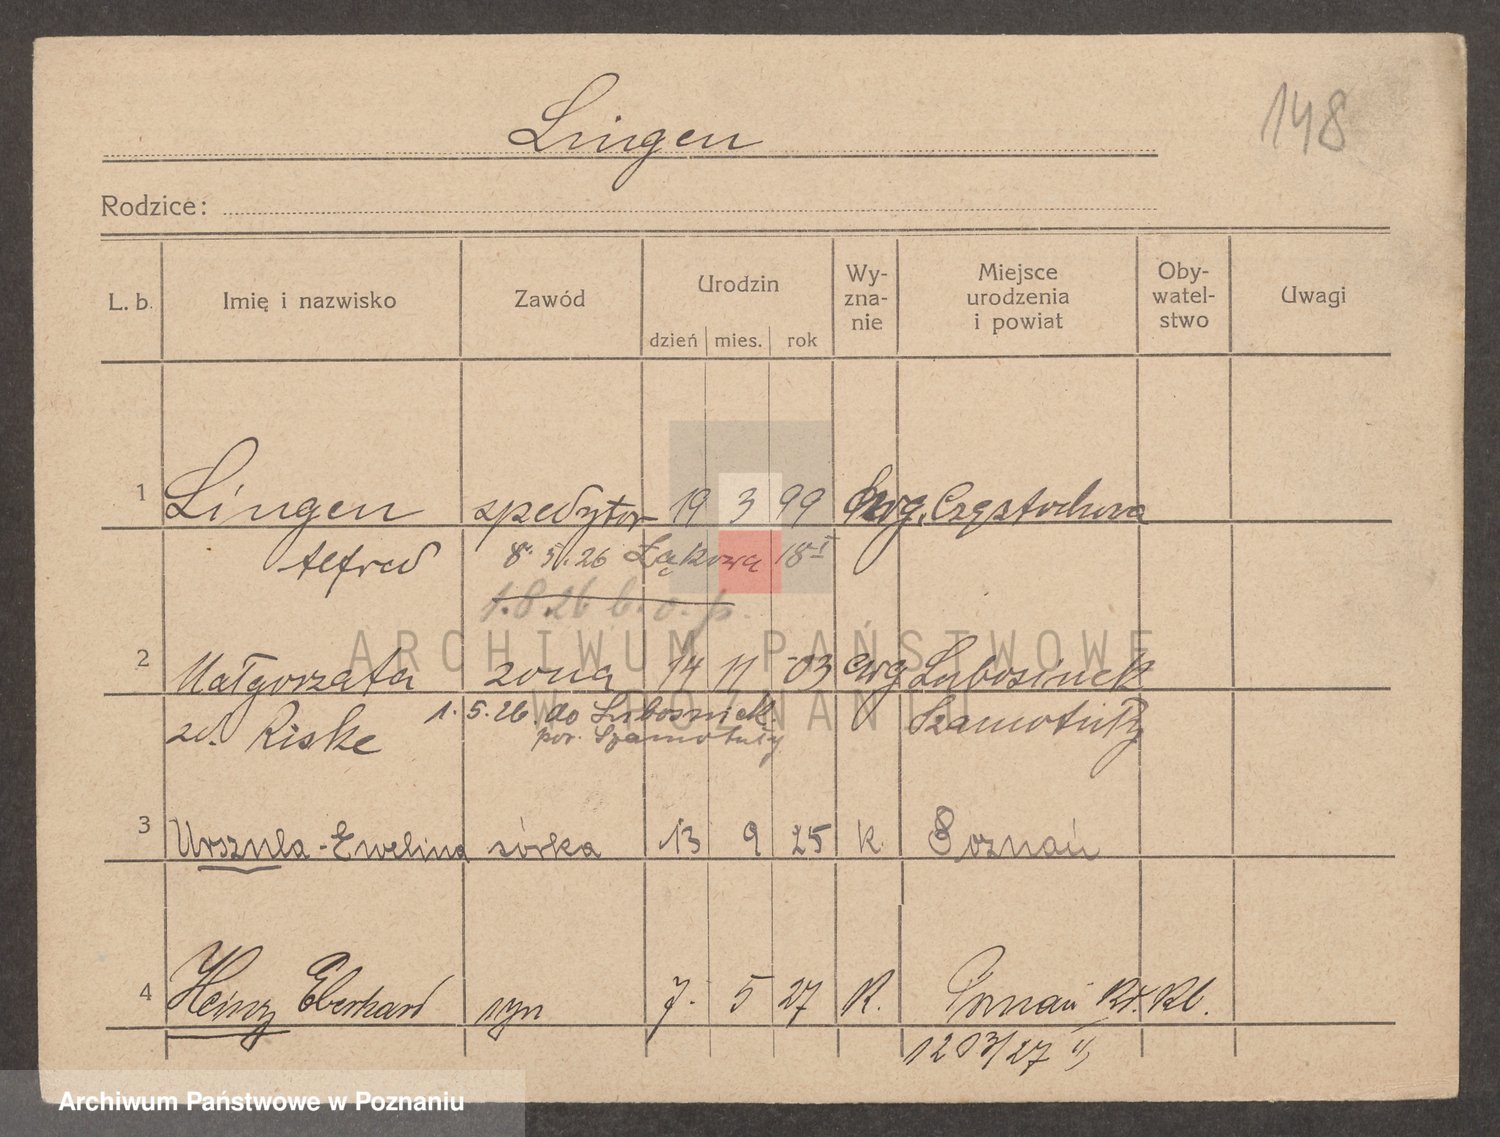 Lingen
148
Rodzice:
L. b. Imię i nazwisko Zawód Urodzin dzień mies. rok Wy-zna-nie Miejsce urodzenia i powiat Oby-watel-stwo Uwagi
1 Lingen spedytor 19 3 99 Ewg. Częstochowa
Alfred 8. 5. 26 Łąkowa 18 I
1.8.26 b. o. p.
ARCHIWUM PAŃSTWOWE
2 Małgorzata żona 14 11 03 ewg Lubosinek
W POZNANIU
zd. Riske 1. 5. 26. do Lubosinek Szamotuły
pow. Szamotuły
3 Urszula-Ewelina córka 13 9 25 k Poznań
4 Heinz Eberhard syn 7. 5 27 K. Poznań Kr. Kl.
1203/27 II
Archiwum Państwowe w Poznaniu